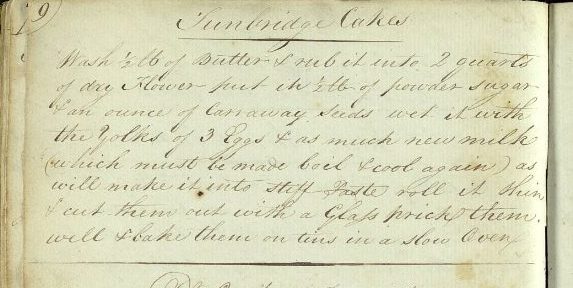 19
Tunbridge Cakes
Wash ½ lb of Butter & rub it into 2 quarts
of dry Flower put in ½ lb of powder sugar
& an ounce of Carraway seeds wet it with
the Yolks of 3 Eggs & as much new milk
(which must be made boil & cool again) as
will make it into stiff Paste roll it thin
& cut them out with a Glass prick them
well & bake them on tins in a slow Oven